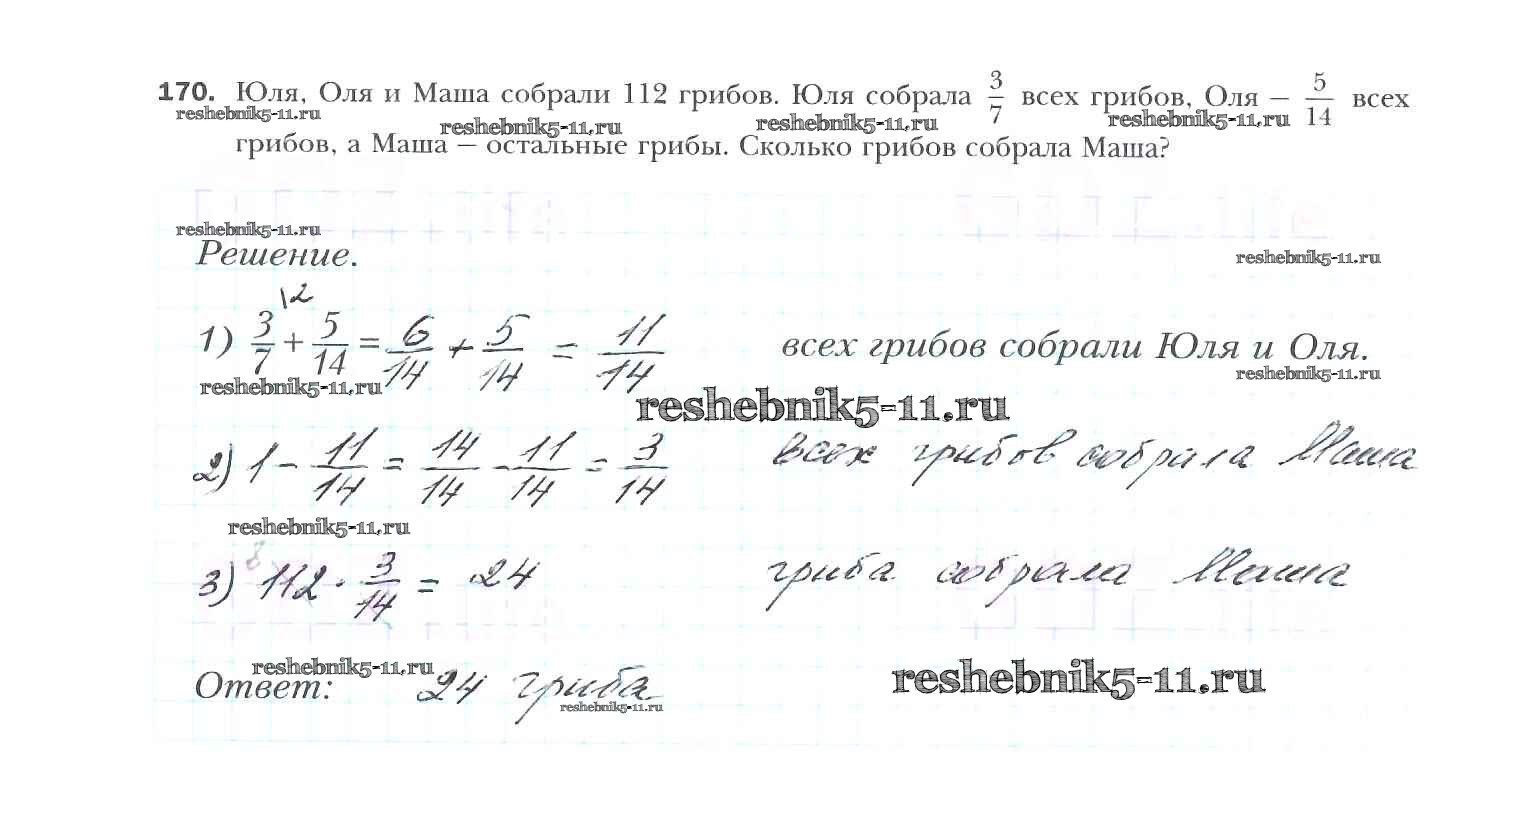 170. Юля, Оля и Маша собрали 112 грибов. Юля собрала 3/7 всех грибов, Оля — 5/14 всех
reshebnik5-11.ru reshebnik5-11.ru reshebnik5-11.ru reshebnik5-11.ru
грибов, а Маша — остальные грибы. Сколько грибов собрала Маша?
reshebnik5-11.ru
Решение.
reshebnik5-11.ru
1) 3/7 \2 + 5/14 = 6/14 + 5/14 = 11/14 всех грибов собрали Юля и Оля.
reshebnik5-11.ru reshebnik5-11.ru
reshebnik5-11.ru
2) 1 - 11/14 = 14/14 - 11/14 = 3/14 всех грибов собрала Маша
reshebnik5-11.ru
3) 112 · 3/14 = 24 гриба собрала Маша
reshebnik5-11.ru reshebnik5-11.ru
Ответ: 24 гриба
reshebnik5-11.ru